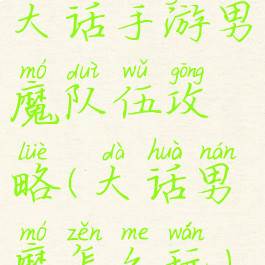 大话手游男
mó duì wǔ gōng
魔队伍攻
lüè dà huà nán
略(大话男
mó zěn me wán
魔怎么玩)